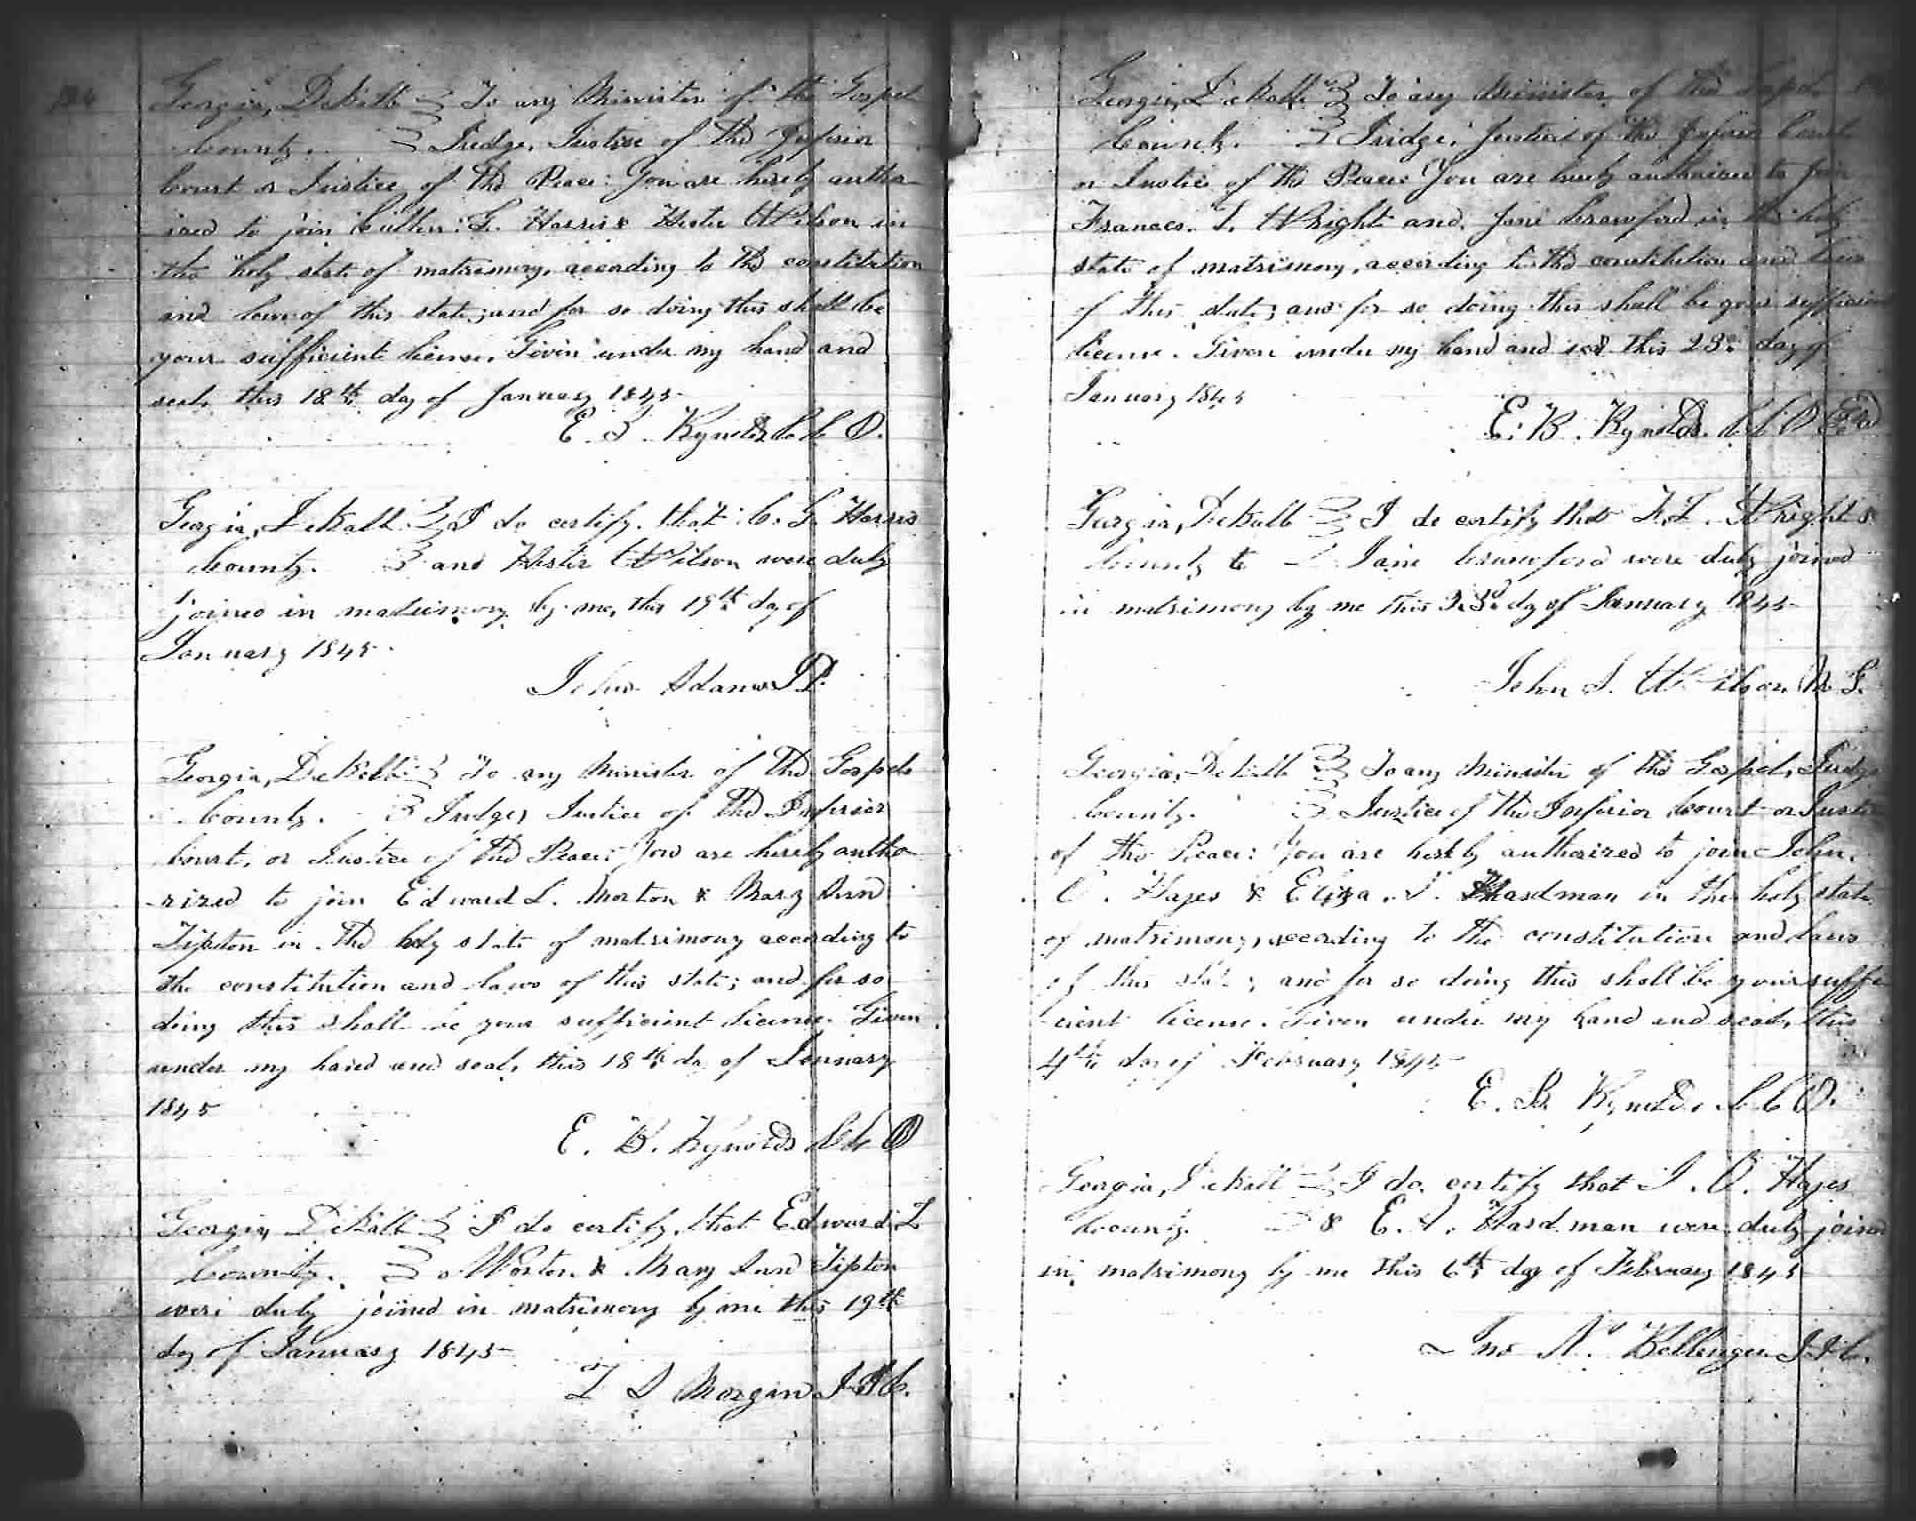 Georgia, DeKalb } To any Minister of the Gospel
County. } Judge, Justice of the Inferior
Court or Justice of the Peace: You are hereby autho
ized to join Cullen G. Harris & Hester Wilson in
the holy state of matrimony, according to the constitution
and laws of this state; and for so doing this shall be
your sufficient license. Given under my hand and
seal, this 18th day of January 1845
E. B. Rynolds C. C. O.
Georgia, DeKalb } I do certify that C. G. Harris
County. } and Hester Wilson were duly
joined in matrimony by me, this 19th day of
January 1845.
John Adams J.P.
Georgia, DeKalb } To any Minister of the Gospel
County. } Judge, Justice of the Inferior
Court, or Justice of the Peace: You are hereby autho
rized to join Edward L. Morton & Mary Ann
Tipton in the holy state of matrimony according to
the constitution and laws of this state; and for so
doing this shall be your sufficient license. Given
under my hand and seal, this 18th da of January
1845
E. B. Rynolds C C O
Georgia, DeKalb } I do certify, that Edward L
County. } Morton & Mary Ann Tipton
were duly joined in matrimony by me this 19th
day of January 1845
L S Morgin J.I.C.
Georgia, DeKalb } To any Minister of the Gospel
County. } Judge, Justice of the Inferior Court
or Justice of the Peace: You are hereby authorized to join
Frances. L. Wright and Jane Crawford in the holy
state of matrimony, according to the constitution and laws
of this state; and for so doing this shall be your sufficient
license. Given under my hand and seal this 23d day of
January 1845
E. B. Rynolds. C. C. O
Georgia, DeKalb } I do certify that F. L. Wright &
County to } Jane Crawford were duly joined
in matrimony by me this 23d day of January 1845
John S. Wilson M. G.
Georgia, DeKalb } To any Minister of the Gospel, Judge
County. } Justice of the Inferior Court or Justice
of the Peace: You are hereby authorized to join John.
O. Hayes & Eliza. A. Hardman in the holy state
of matrimony, according to the constitution and laws
of this state; and for so doing this shall be your suffi
cient license. Given under my hand and seal, this
4th day of February 1845
E. B. Rynolds C C O.
Georgia, DeKalb } I do certify that J. O. Hayes
County. } & E. A. Hardman were duly joined
in matrimony by me this 6th day of February 1845
Jno N. Bellinger J I C.